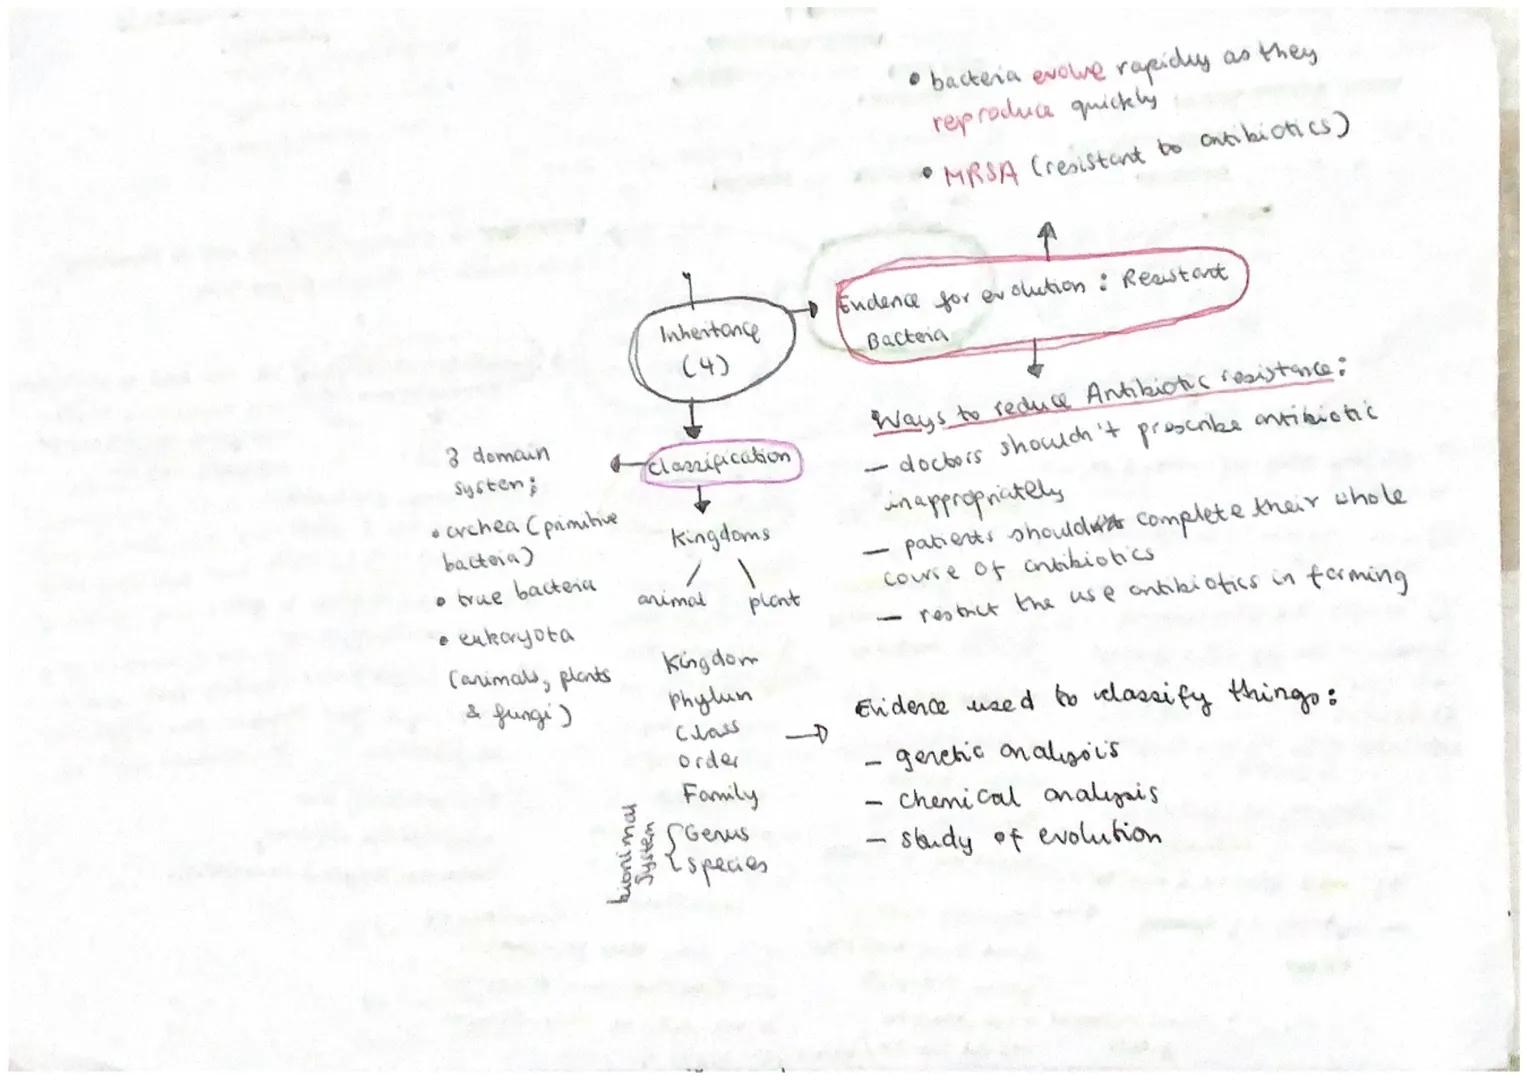 • bacteria evolve rapidly as they
reproduce quickly
• MRSA (resistant to antibiotics)
Evidence for evolution : Resistant
Bacteria
Inheritance
(4)
Ways to reduce Antibiotic resistance:
— doctors shouldn't prescribe antibiotic
inappropriately
— patients should complete their whole
course of antibiotics
— restrict the use antibiotics in farming
classification
3 domain
system;
• archea (primitive
bacteria)
• true bacteria
• eukaryota
(animals, plants
& fungi)
kingdoms
animal plant
Kingdom
Phylum
Class
order
Family
Genus
species
bionimal
system
Evidence used to classify things:
- genetic analysis
- chemical analysis
- study of evolution